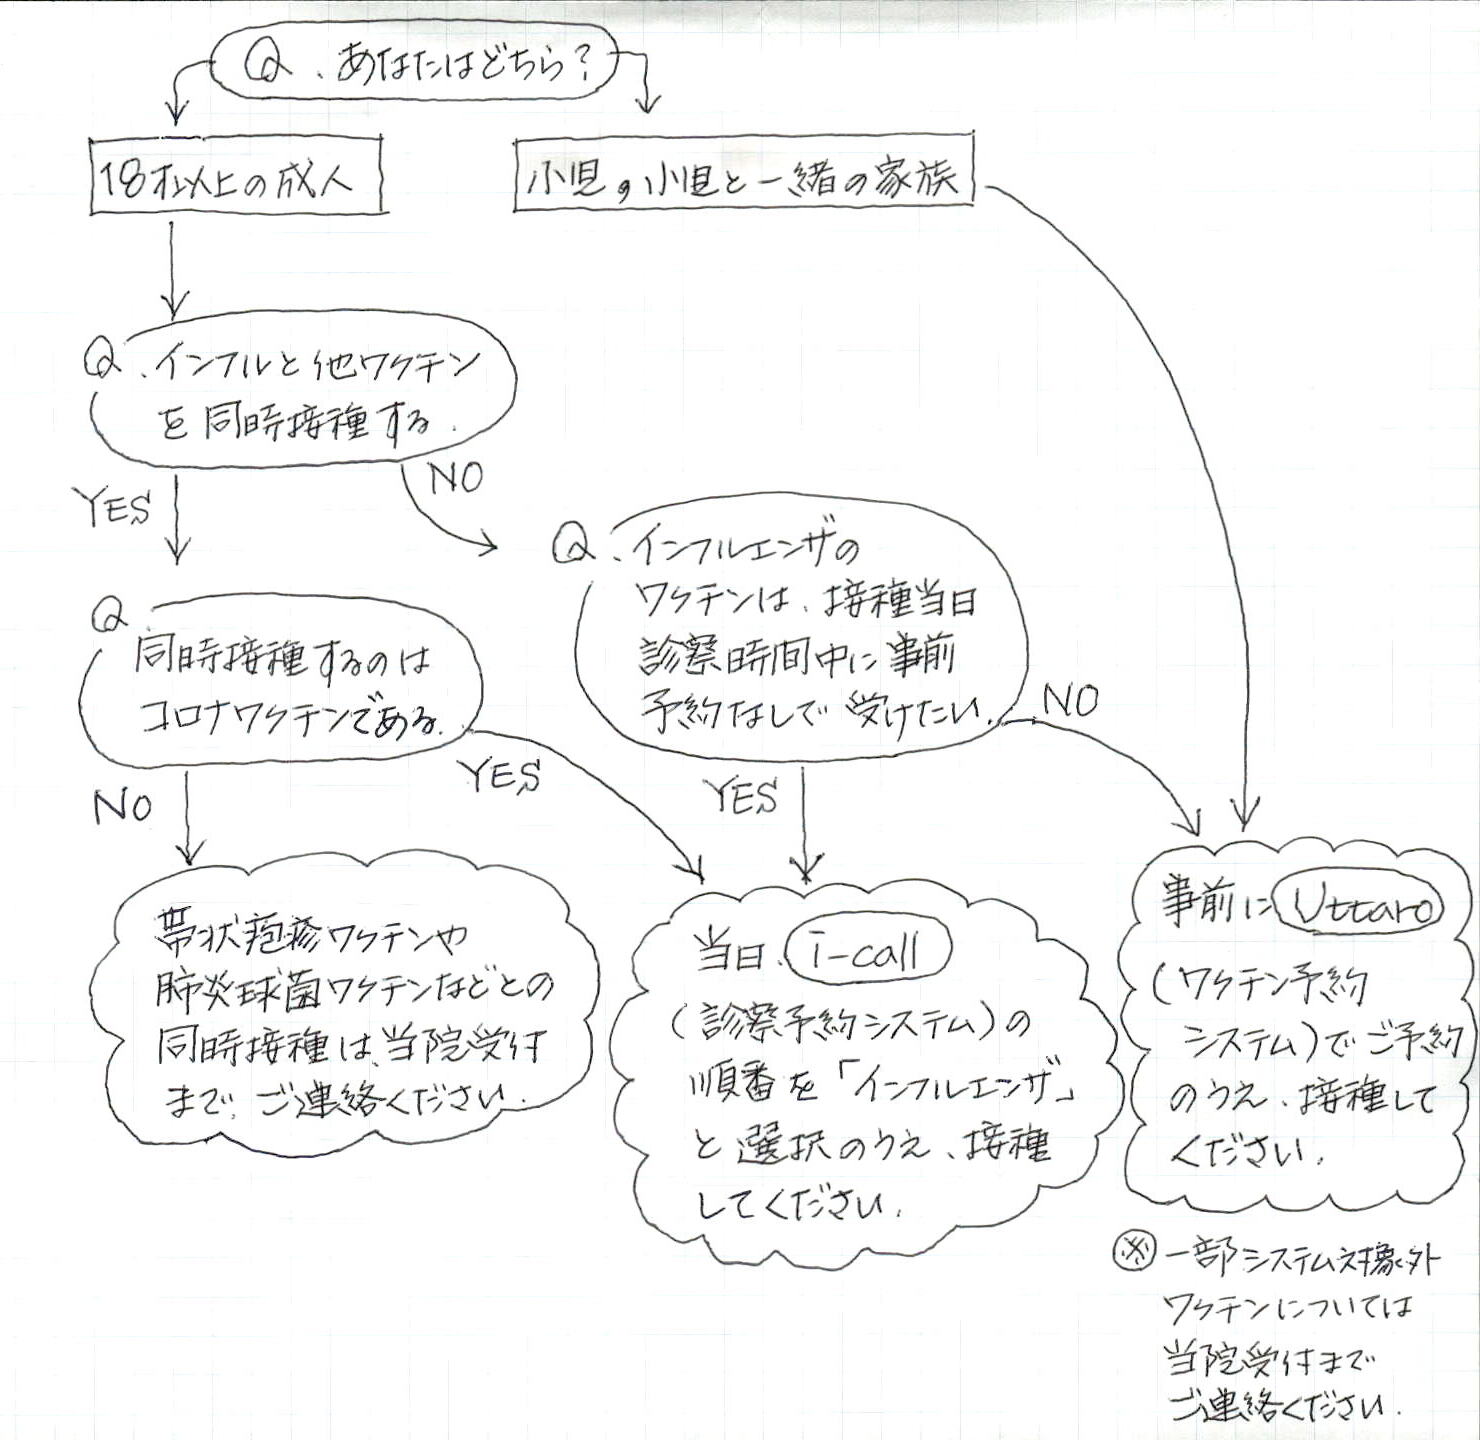 Q.あなたはどちら?
18才以上の成人
小児,小児と一緒の家族
Q.インフルと他ワクチン
を同時接種する.
YES
NO
Q.インフルエンザの
ワクチンは、接種当日
診察時間中に事前
予約なしで受けたい.
Q.
同時接種するのは
コロナワクチンである.
NO
YES
YES
NO
帯状疱疹ワクチンや
肺炎球菌ワクチンなどとの
同時接種は、当院受付
まで、ご連絡ください.
当日、i-call
(診察予約システム)の
順番を「インフルエンザ」
と選択のうえ、接種
してください.
事前にUttaro
(ワクチン予約
システム)でご予約
のうえ、接種して
ください.
※一部システム対象外
ワクチンについては
当院受付まで
ご連絡ください.